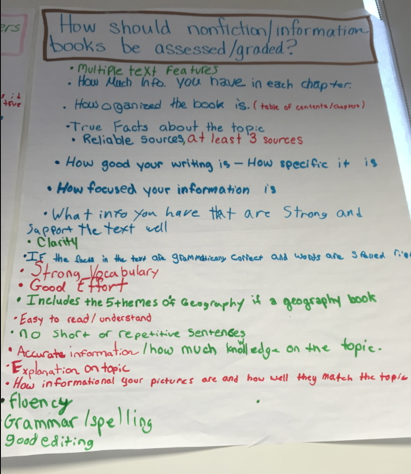 How should nonfiction/information
books be assessed/graded?
• Multiple text features
• How Much info. you have in each chapter.
• How organized the book is. (table of contents/chapters)
• True Facts about the topic
• Reliable sources, at least 3 sources
• How good your writing is - How specific it is
• How focused your information is
• What info you have that are strong and
support the text well
• Clarity
• If the facts in the text are grammatically correct and words are spelled
• Strong Vocabulary
• Good Effort
• Includes the 5 themes of Geography if a geography book
• Easy to read/understand
• no short or repetitive sentences
• Accurate information/how much knowledge on the topic.
• Explanation on topic
• How informational your pictures are and how well they match the topic
• fluency
Grammar/spelling
good editing
ers